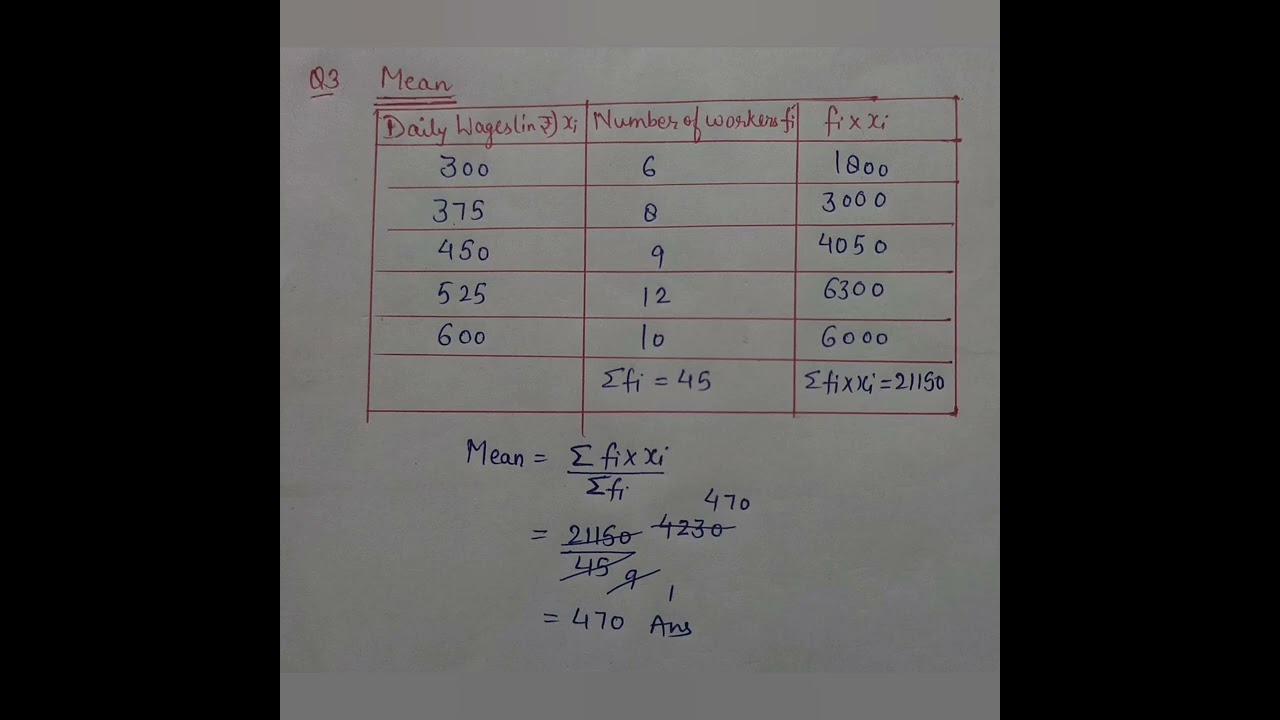 Q3 Mean
Daily Wages(in ₹) xi Number of workers fi fi × xi
300 6 1800
375 8 3000
450 9 4050
525 12 6300
600 10 6000
Σfi = 45 Σfi×xi = 21150
Mean = Σ fi × xi
Σfi
470
= 21150 4230
45 9
1
= 470 Ans